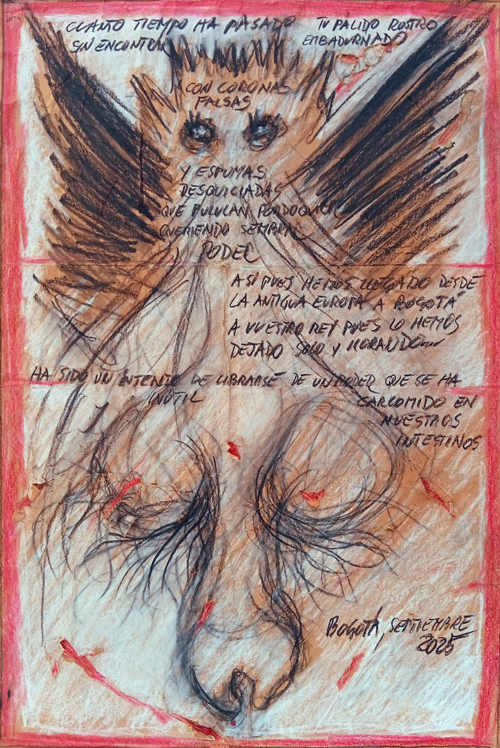 CUANTO TIEMPO HA PASADO
SIN ENCONTRAR
TU PALIDO ROSTRO
EMBADURNADO
CON CORONAS
FALSAS
Y ESPUMAS
DESQUICIADAS
QUE PULULAN POR DOQUIER
QUERIENDO SEMBRAR
PODER
ASI PUES HEMOS LLEGADO DESDE
LA ANTIGUA EUROPA A BOGOTÁ
A VUESTRO REY PUES LO HEMOS
DEJADO SOLO Y LLORANDO
HA SIDO UN INTENTO DE LIBRARSE DE UN PODER QUE SE HA
INÚTIL
CARCOMIDO EN
NUESTROS
INTESTINOS
BOGOTÁ, SEPTIEMBRE
2025